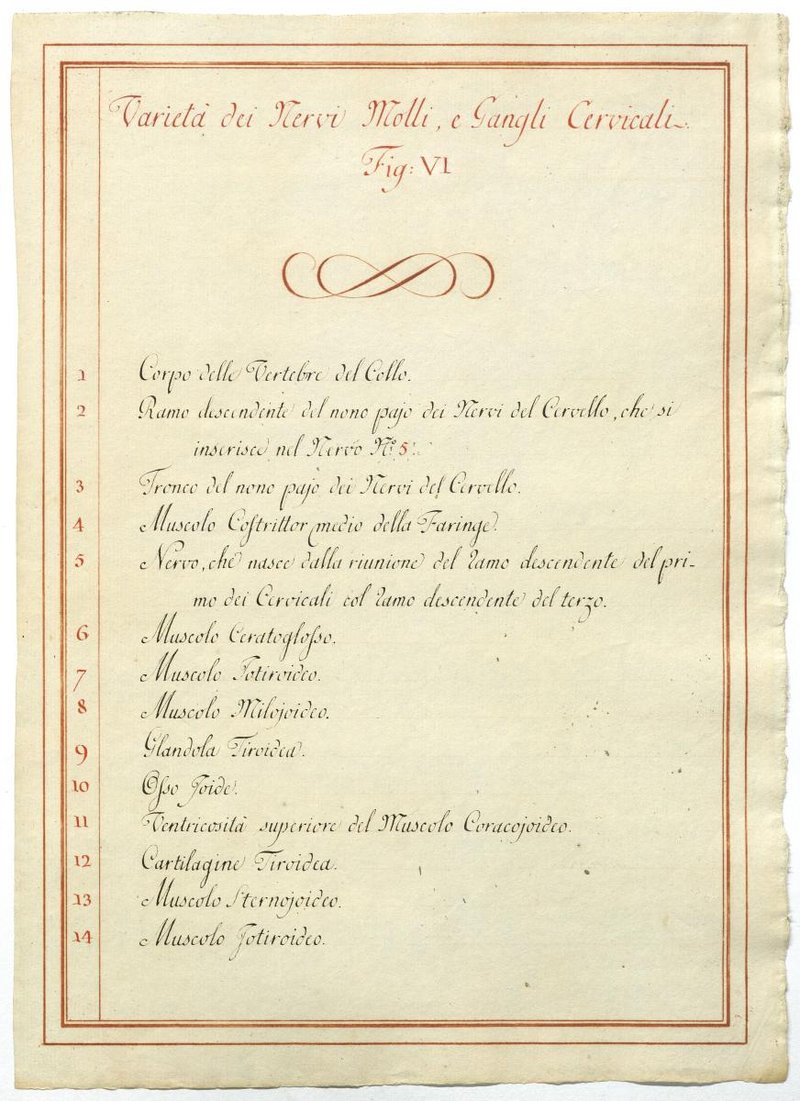 Varietà dei Nervi Molli, e Gangli Cervicali.
Fig: VI
1 Corpo delle Vertebre del Collo.
2 Ramo descendente del nono pajo dei Nervi del Cervello, che si
inserisce nel Nervo Nº 5.
3 Tronco del nono pajo dei Nervi del Cervello.
4 Muscolo Coſtrittor medio della Faringe.
5 Nervo, che nasce dalla riunione del ramo descendente del pri-
mo dei Cervicali col ramo descendente del terzo.
6 Muscolo Ceratogloſso.
7 Muscolo Jotiroideo.
8 Muscolo Milojoideo.
9 Glandola Tiroidea.
10 Oſso Joide.
11 Ventricosità superiore del Muscolo Coracojoideo.
12 Cartilagine Tiroidea.
13 Muscolo Sternojoideo.
14 Muscolo Jotiroideo.